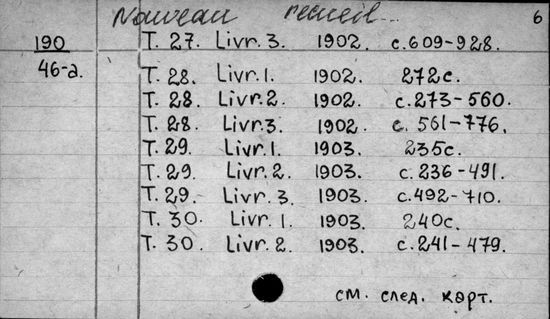 Nouveau recueil... 6
190 T. 27. Livr. 3. 1902. c. 609-928.
46-а. T. 28. Livr. 1. 1902. 272c.
T. 28. Livr. 2. 1902. c. 273-560.
T. 28 Livr. 3. 1902. c. 561-776.
T. 29. Livr. 1. 1903. 235c.
T. 29. Livr. 2. 1903. c. 236-491.
T. 29. Livr. 3. 1903. c. 492-710.
T. 30. Livr. 1. 1903. 240c.
T. 30. Livr. 2. 1903. c. 241-479.
см. след. карт.